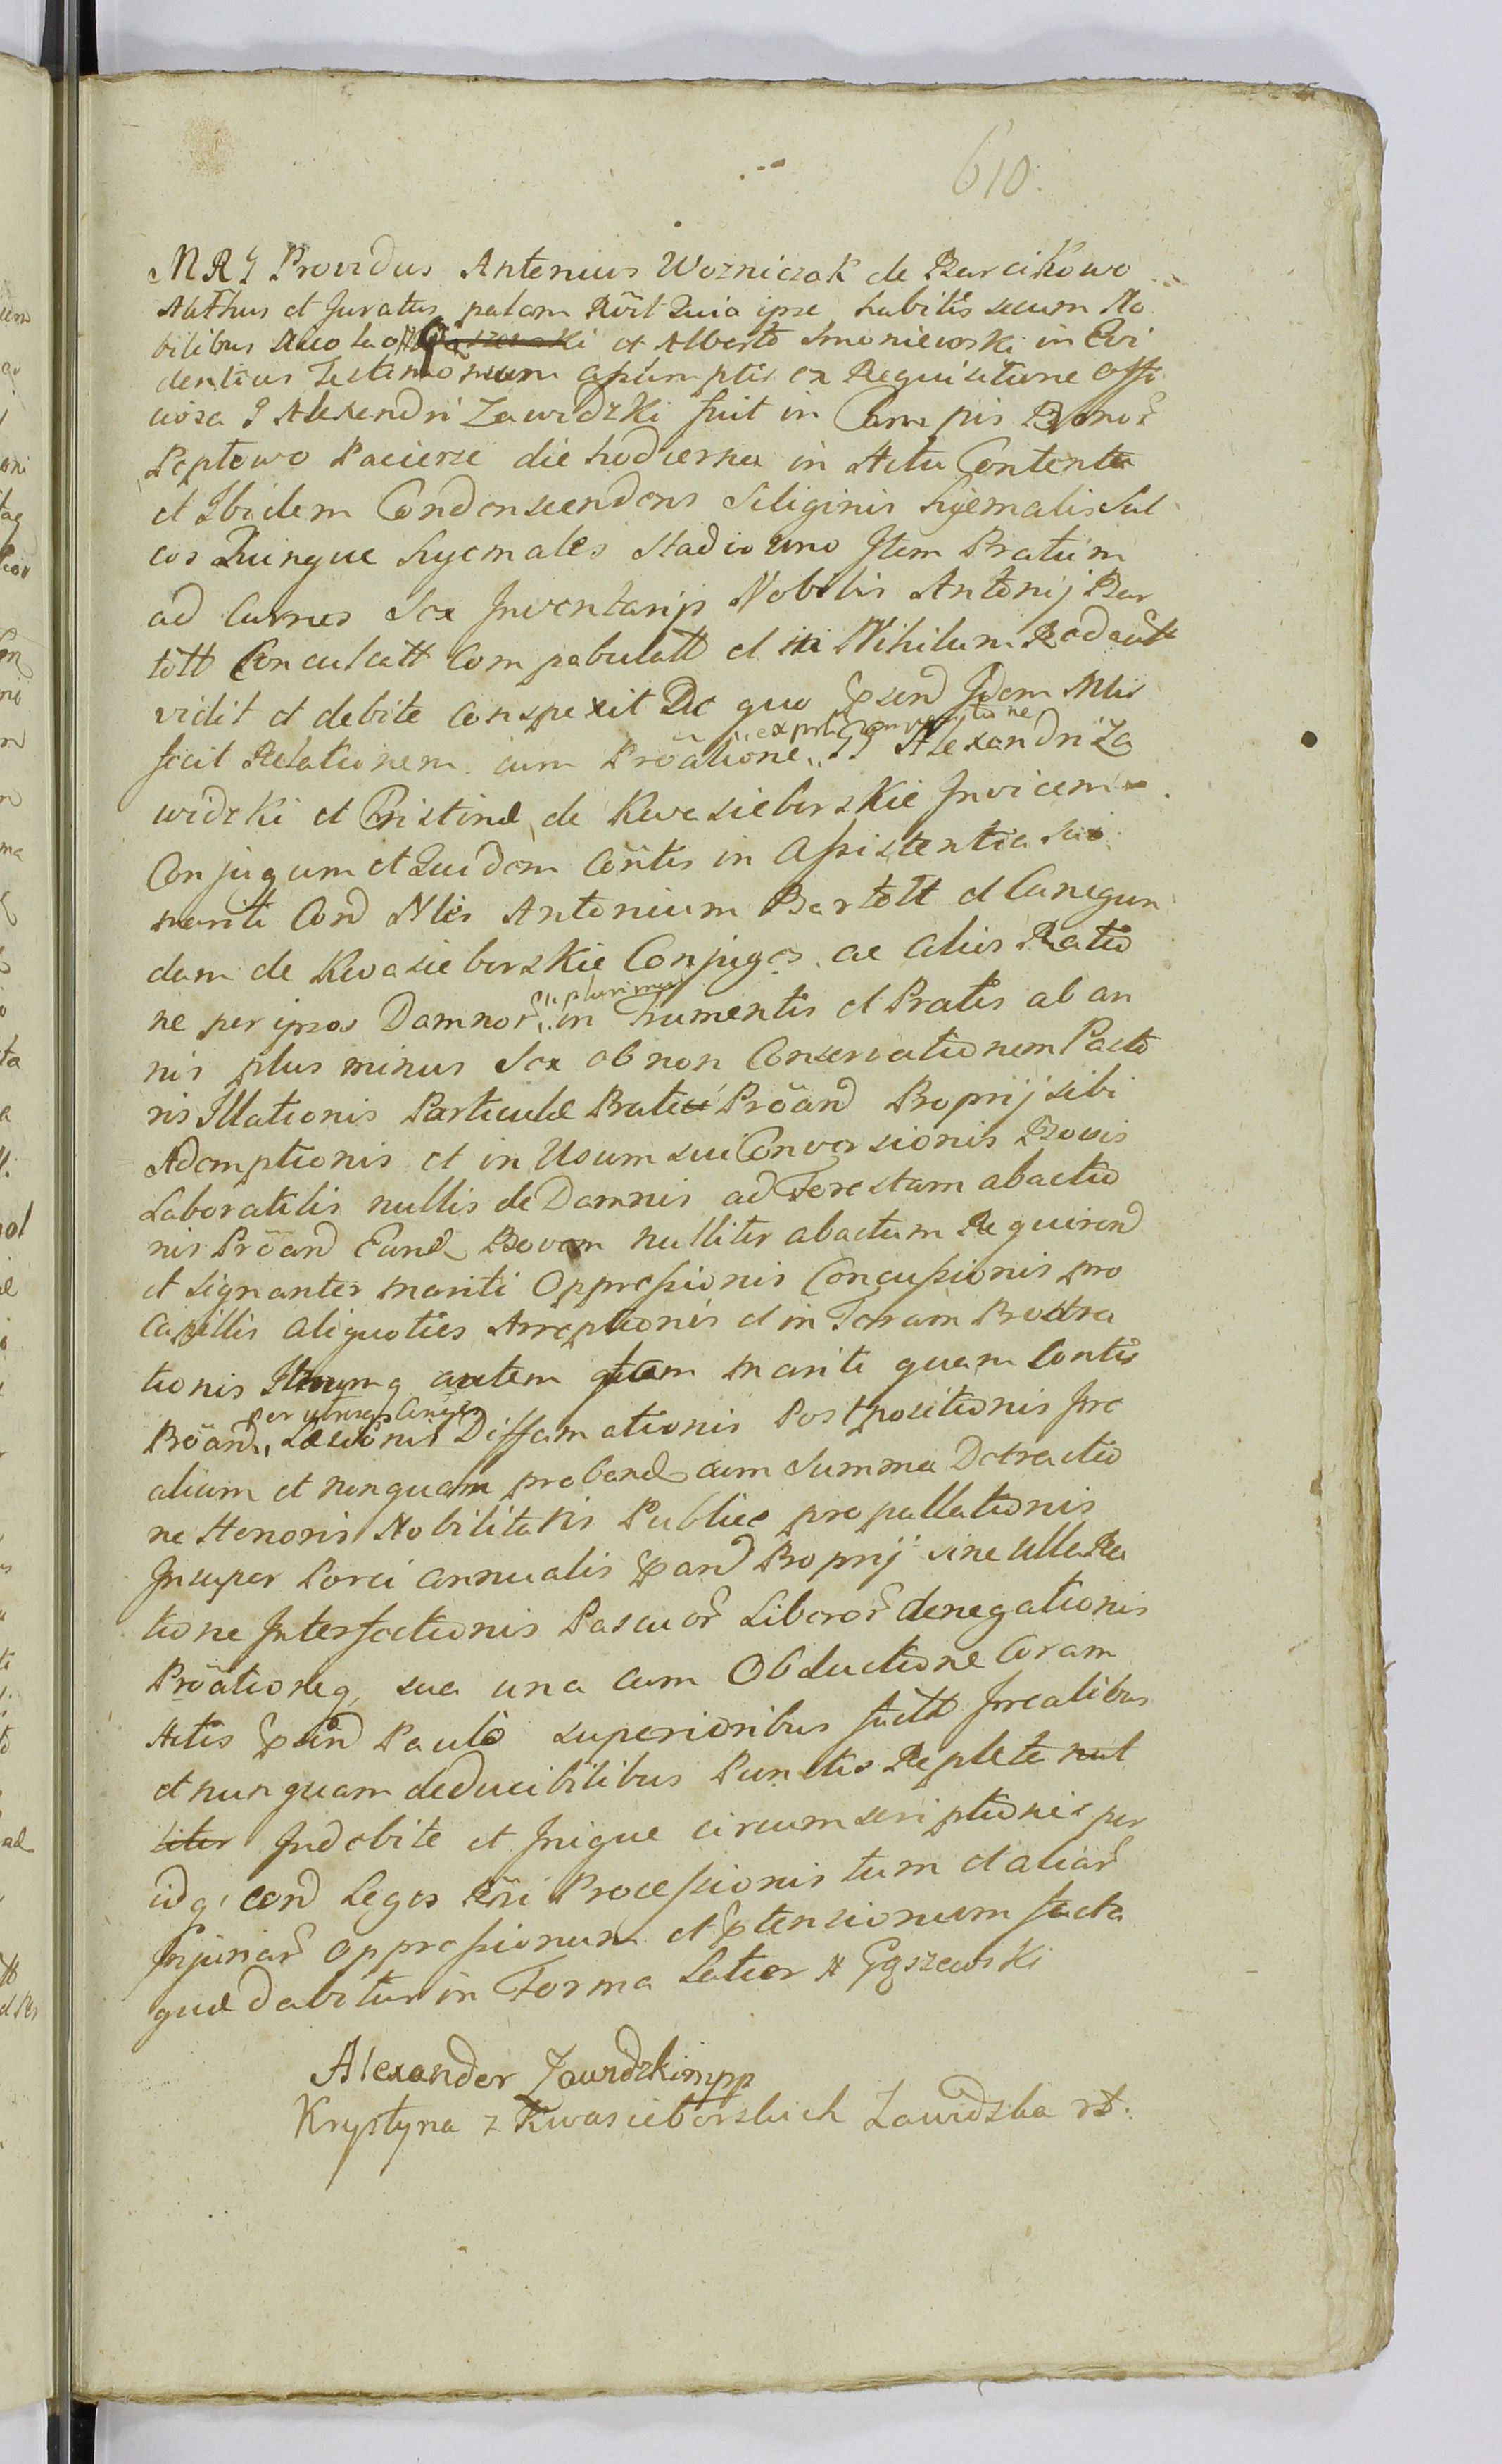 610.
MRG Providus Antonius Wozniczak de Barcikowo
Authus et Juratus palam Rōit Quia ipse habitis secum No
bilibus et Alberto Smoniewski in Evi
dentius Testimonium assumptis ex Requisitione offi
ciosa G Alexandri Zawidzki fuit in Campis Bonor
Peptowo Pacierze die hodierna in Actu Contenta
et Ibidem Condenscendens Siliginis hyemalis Sul
cos Quinque hyemales Stadio uno Item Pratum
ad Currus Sex Inventarijs Nobilis Antonij Bar
tolt Conculcatt Compabulatt et in Nihilum Redactt
vidit et debite conspexit De quo psend Idem Mlis
fecit Relationem cum Prōatione GG Alexandri Za
widzki et Cristinæ de Kwasieborskie Invicem
Conjugum et Quidem Cōntis in Assistentia sui
mariti Cond Nles Antonium Bartolt et Cunegun
dam de Kwasieborskie Conjuges ac alios Ratio
ne per ipsos Damnor „ in plurimis Frumentis et Pratis ab an
nis plus minus Sex ob non Conservationem Pasto
ris Illationis Particulæ Prati Prōand Proprij sibi
Ademptionis et in Usum sui Conversionis Bovis
Laboratilis nullis de Damnis ad Forestam abactio
nis Prōand Eund Bovem nulliter abactum Requirend
et signanter mariti Oppressionis Concussionis pro
Capillis aliquoties Arreptionis et in Terram Prostra
tionis autem tam mariti quam Contis
Prōand „ per utrosq Conjges Læsionis Diffamationis Postpositionis Irre
alium et nunquam proband cum Summa Detractio
ne Honoris Nobilitatis Publice propallationis
Insuper Porci annualis pand Proprij sine ulla Ra
tione Interfectionis Pascuor Liberor denegationis
Prōationeq sua una cum Obductione Coram
Actis psend Paulo superioribus factt Irrealibus
et nunquam deducibilibus Punctis Replete nul
liter Indebite et Inique circumscriptionis per
idq cond Leges Rni Processionis tum et aliar
Injuriar oppressionum et ptensionum facta
quæ dabitur in Forma Latior A Gąszewski
Alexander Zawidzki mpp
Krystyna z Kwasieborskich Zawidzka